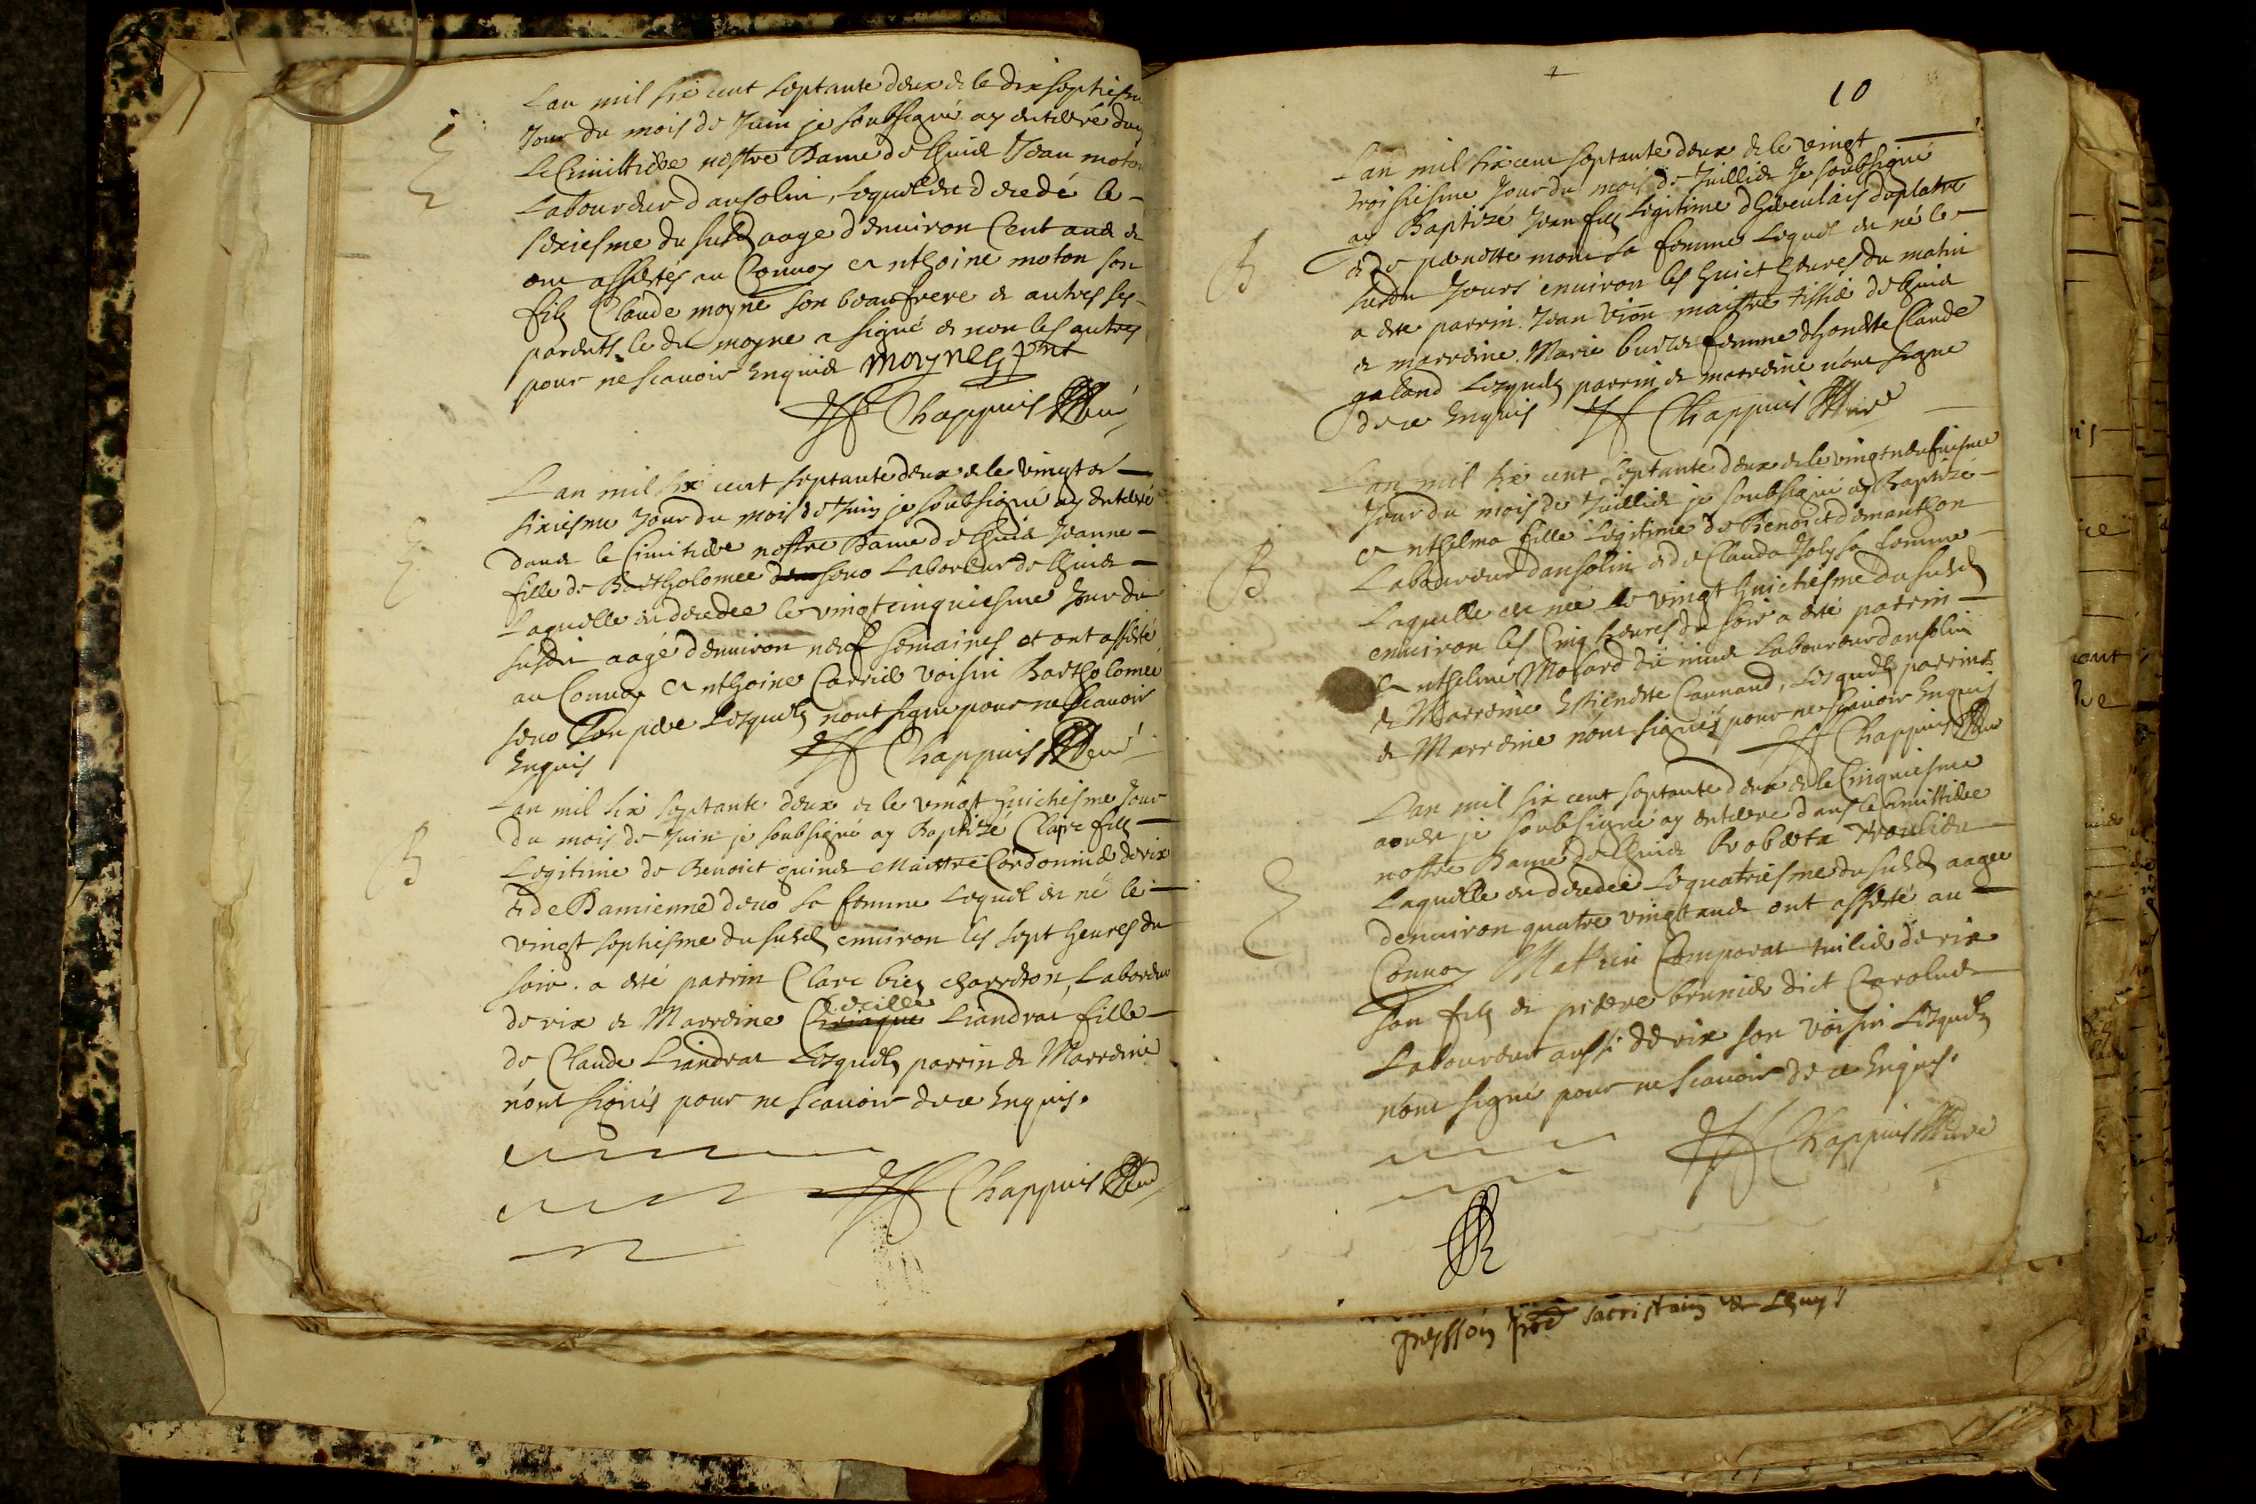 Lan mil six cent septante deux & le dixseptiesme
Jour du mois de Juin je soubsigné ay entterré dans
Le Cimittiere nostre Dame de Lhuis Jean moton
Laboureur dansolin, lequel est decedé le
seziesme du susd aage denviron Cent ans &
ont assistés au Convoy Anthoine moton son
filz Claude moyne son beaufrere & autres ses
parents, le dit moyne a signé & non les autres
pour ne scavoir Enquis moyne pnt
Chappuis Curé
E
Lan mil six cent septante deux & le vingt &
sixiesme Jour du mois de Juin je soubsigné ay entterré
dans le Cimitiere nostre Dame de Lhuis Jeanne
fille de Bartholomee seno Laboreur de Lhuis
Laquelle est decedee le vingtcinquiesme Jour du
susdit aagé denviron neuf semaines et ont assisté
au Convoy Anthoine Carrier voisin Bartholomee
seno son pere Lesquelz nont signe pour ne scavoir
Enquis Chappuis Curé
E
Lan mil six septante deux & le vingt huictiesme Jour
du mois de Juin je soubsigné ay Baptizé Clare filz
Legitime de Benoict quinet Maittre Cordonnier de rix
& de Damienne deno sa femme Lequel est né le
vingt septiesme du susd environ les sept heures du
soir. a esté parrin Clare bien charreton, Laboreur
de rix & Marreine Cecille Liandrat fille
de Claude Liandrat Lesquelz parrin & Marreine
n'ont signés pour ne scavoir de ce Enquis.
B
Chappuis Curé
10
Lan mil six cent septante deux & le vingt
troisiesme Jour du mois de Juilliet Je soubsigné
ay Baptizé Jean filz Legitime dhiveulais duplatre
& de pernette mont sa femme Lequel est né le
susdit Jours environ les huict heures du matin
a este parrin. Jean vion maistre tissier de Lhuis
& marreine. Marie buelet femme dhoneste Claude
galand Lesquelz parrin & marreine nont signe
de ce Enquis Chappuis Curé
B
Lan mil six cent septante deux & le vingtneufiesme
Jour du mois de Juilliet je soubsigné ay Baptizé
Anthelma fille Legitime de Benoict demanthon
Laboureur dansolin & de Clauda Joly sa femme
Laquelle est née le vingt huictiesme du susd
environ les Cinq heures du soir a esté parrin
Anthelme Mosard dit minet Laboureur dansolin
& Marreine Estiennette Cannand, Lesquelz parrins
& Marreine nont signés pour ne scavoir Enquis
Chappuis Curé
B
Lan mil six cent septante deux & le Cinquiesme
aoust je soubsigné ay entterre dans le Cimittiere
nostre Dame de Lhuis Roberta
Laquelle est decedée le quatriesme du susd aagee
denviron quatre vingt ans ont assisté au
Convoy Mathieu Comparat tuilier de rix
son filz & pierre brunier dict Carolus
Laboureur aussi de rix son voisin Lesquelz
n'ont signé pour ne scavoir de ce Enquis.
E
Chappuis Curé
sacristain de Lhuys